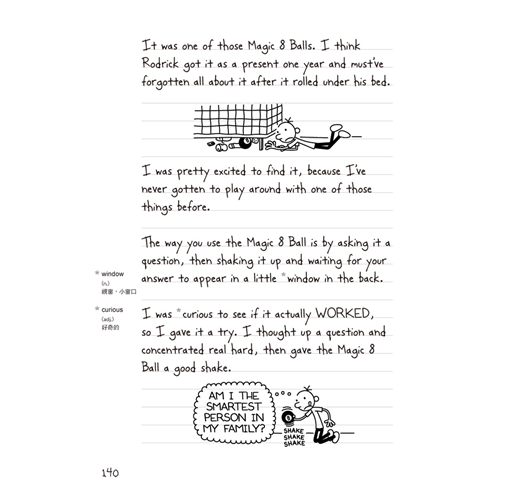 It was one of those Magic 8 Balls. I think
Rodrick got it as a present one year and must've
forgotten all about it after it rolled under his bed.
I was pretty excited to find it, because I've
never gotten to play around with one of those
things before.
The way you use the Magic 8 Ball is by asking it a
question, then shaking it up and waiting for your
answer to appear in a little *window in the back.
* window
(n.)
視窗，小窗口
* curious
(adj.)
好奇的
I was *curious to see if it actually WORKED,
so I gave it a try. I thought up a question and
concentrated real hard, then gave the Magic 8
Ball a good shake.
AM I THE
SMARTEST
PERSON IN
MY FAMILY?
8
SHAKE
SHAKE
SHAKE
140